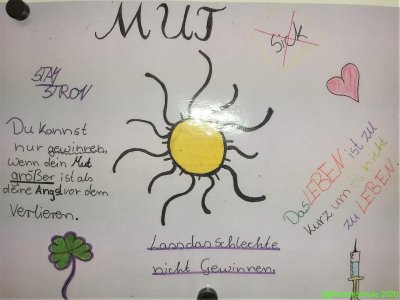 MUT
Sick
STAY
STRON
Du kannst
nur gewinnen,
wenn dein Mut
größer ist als
deine Angst vor dem
Verlieren.
Das LEBEN ist zu
kurz um es nicht
zu LEBEN.
Lass das schlechte
nicht Gewinnen.
2020